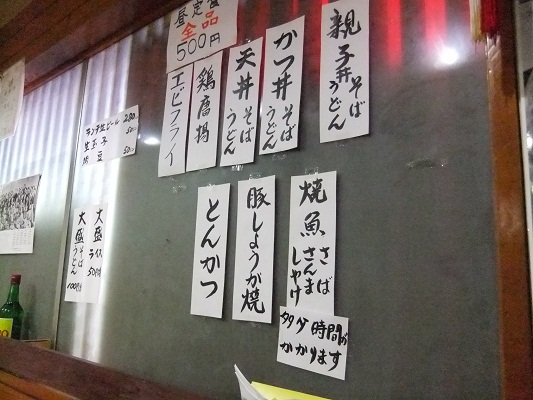 昼定食
全品
500円
親子丼そばうどん
かつ丼そばうどん
天丼そばうどん
鶏唐揚
エビフライ
焼魚さばさんましゃけ
多少時間が
かかります
豚しょうが焼
とんかつ
ランチ生ビール 280
生玉子 50
納豆 50
大盛ライス 50円増
大盛そばうどん 100円増